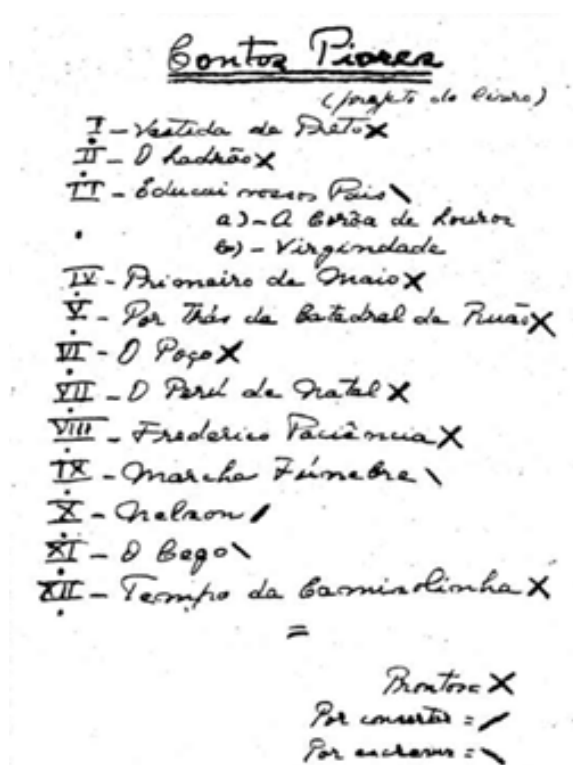 Contos Piores
(projeto do livro)
I - Vestida de Preto X
II - O Ladrão X
III - Educai nossos Pais \
a) - A Corôa de Louros
b) - Virgindade
IV - Primeiro de Maio X
V - Por Trás da Catedral de Ruão X
VI - O Poço X
VII - O Perú de Natal X
VIII - Frederico Paciência X
IX - Marcha Fúnebre \
X - Nelson /
XI - O Cego \
XII - Tempo da Camisolinha X
=
Prontos = X
Por consertar = /
Por escrever = \